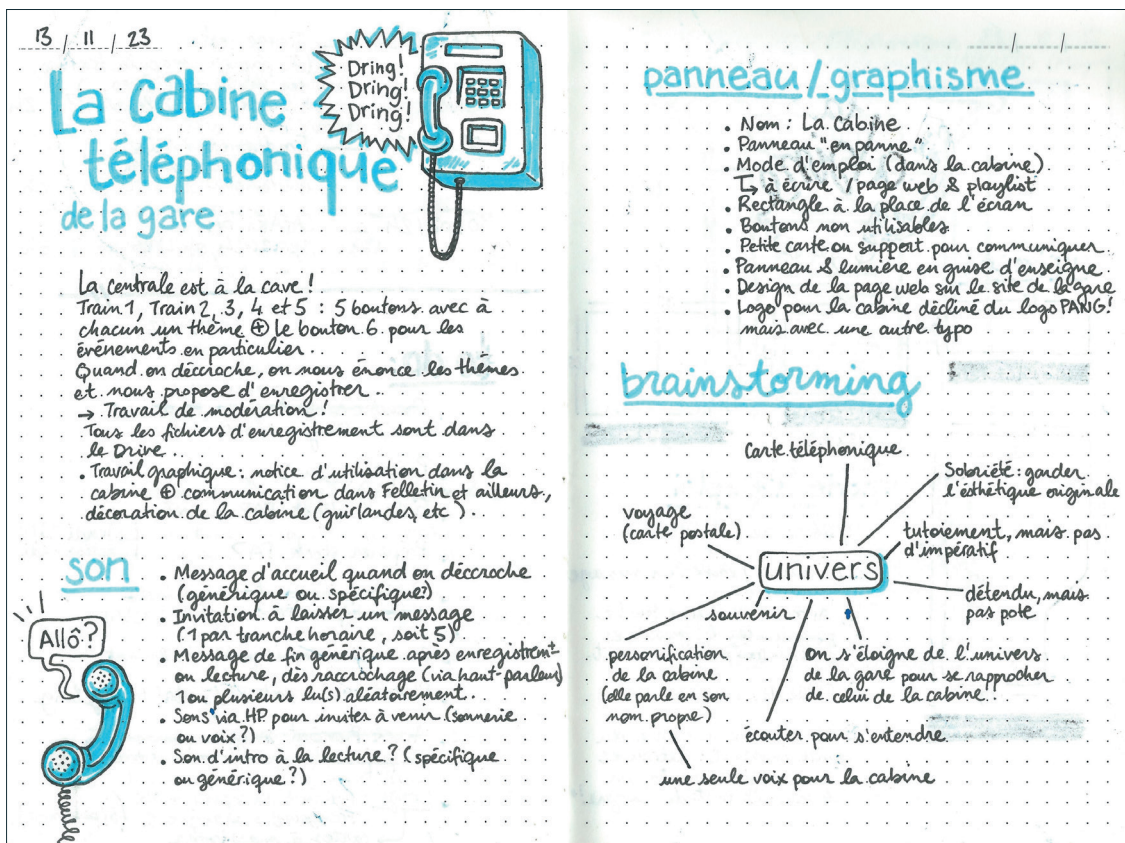 13 / 11 / 23
La cabine
téléphonique
de la gare
Dring!
Dring!
Dring!
La centrale est à la cave !
Train 1, Train 2, 3, 4 et 5 : 5 boutons avec à
chacun un thème ⊕ le bouton 6 pour les
événements en particulier.
Quand on déccroche, on nous énonce les thèmes
et nous propose d'enregistrer.
→ Travail de modération !
Tous les fichiers d'enregistrement sont dans
le Drive.
• Travail graphique : notice d'utilisation dans la
cabine ⊕ communication dans Felletin et ailleurs,
décoration de la cabine (guirlandes, etc).
son
Allô?
• Message d'accueil quand on déccroche
(générique ou spécifique?)
• Invitation à laisser un message
(1 par tranche horaire, soit 5)
• Message de fin générique après enregistremt
ou lecture, dès raccrochage (via haut-parleur)
1 ou plusieurs lu(s) aléatoirement.
• Sons via HP pour inviter à venir (sonnerie
ou voix?)
• Son d'intro à la lecture? (spécifique
ou générique?)
/ /
panneau/graphisme
• Nom : La Cabine
• Panneau "en panne"
• Mode d'emploi (dans la cabine)
↳ à écrire / page web & playlist
• Rectangle à la place de l'écran
• Boutons non utilisables
• Petite carte ou support pour communiquer
• Panneau & lumière en guise d'enseigne
• Design de la page web sur le site de la gare
• Logo pour la cabine décliné du logo PANG!
mais avec une autre typo
brainstorming
Carte téléphonique
Sobriété : garder
l'ésthétique originale
voyage
(carte postale)
tutoiement, mais pas
d'impératif
univers
détendu, mais
pas pote
souvenir
personification
de la cabine
(elle parle en son
nom propre)
on s'éloigne de l'univers
de la gare pour se rapprocher
de celui de la cabine
écouter pour s'entendre
une seule voix pour la cabine